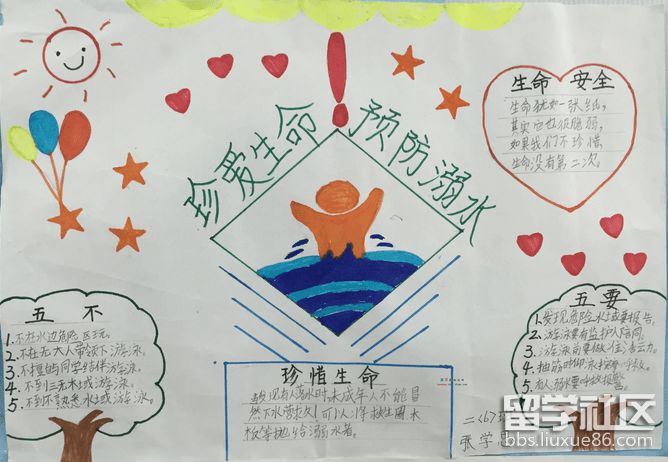 珍爱生命
预防溺水
生命 安全
生命犹如一张纸，
其实它也很脆弱，
如果我们不珍惜，
生命没有第二次。
五 不
1.不在水边危险区玩。
2.不在无大人带领下游泳。
3.不擅自同学结伴游泳。
4.不到三无水域游泳。
5.不到不熟悉水域游泳。
珍惜生命
现有人落水时，未成年人不能冒
然下水营救，可以将救生圈木
板等抛给溺水者。
五要
1.发现危险水域要报告。
2.游泳要有监护人陪同。
3.游泳前要做准备活动。
4.抽筋时仰泳 呼救。
5.有人溺水要呼救报警。
二(6)班
张学思
留学社区
bbs.liuxue86.com